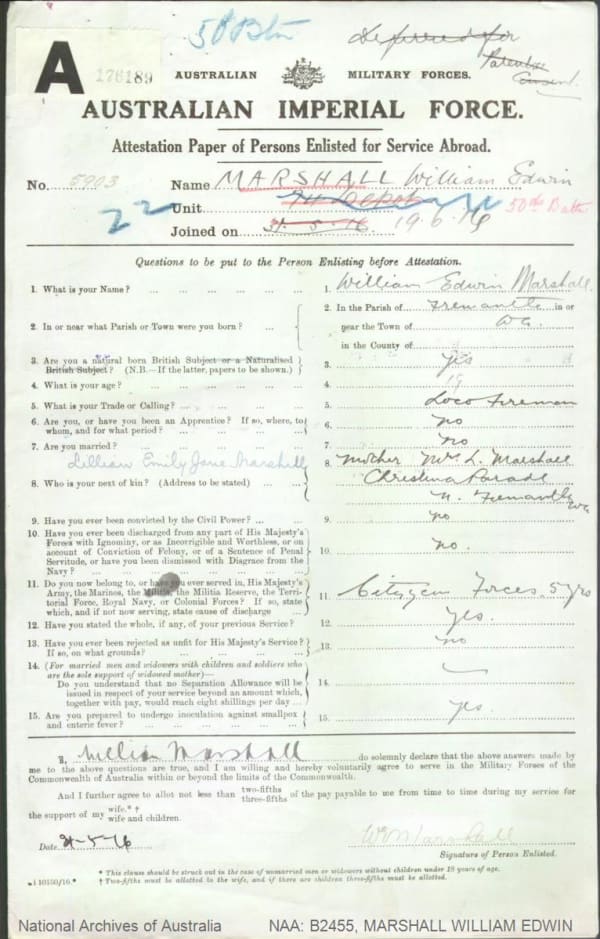 50th Btn
Deferred for
Parents
Consent.
A 176189
AUSTRALIAN MILITARY FORCES.
AUSTRALIAN IMPERIAL FORCE.
Attestation Paper of Persons Enlisted for Service Abroad.
No. 5903 Name MARSHALL William Edwin
22 Unit 50th Battn
Joined on 31.5.16 19.6.16
Questions to be put to the Person Enlisting before Attestation.
1. What is your Name? ... 1. William Edwin Marshall.
2. In or near what Parish or Town were you born? ... 2. In the Parish of Fremantle in or
near the Town of WA.
in the County of
3. Are you a natural born British Subject or a Naturalised
British Subject? (N.B.—If the latter, papers to be shown.) 3. yes
4. What is your age? ... 4. 19
5. What is your Trade or Calling? ... 5. Loco Fireman
6. Are you, or have you been an Apprentice? If so, where, to
whom, and for what period? ... 6. no
7. Are you married? ... 7. no
Lillian Emily Jane Marshall
8. Who is your next of kin? (Address to be stated) ... 8. Mother Mrs L. Marshall
Christina Parade
N. Fremantle WA
9. Have you ever been convicted by the Civil Power? ... 9. no
10. Have you ever been discharged from any part of His Majesty's
Forces with Ignominy, or as Incorrigible and Worthless, or on
account of Conviction of Felony, or of a Sentence of Penal
Servitude, or have you been dismissed with Disgrace from the
Navy? ... 10. no.
11. Do you now belong to, or have you ever served in, His Majesty's
Army, the Marines, the Militia, the Militia Reserve, the Terri-
torial Force, Royal Navy, or Colonial Forces? If so, state
which, and if not now serving, state cause of discharge 11. Citizen Forces. 5 yrs
12. Have you stated the whole, if any, of your previous Service? 12. yes.
13. Have you ever been rejected as unfit for His Majesty's Service?
If so, on what grounds? ... 13. no
14. (For married men and widowers with children and soldiers who
are the sole support of widowed mother)—
Do you understand that no Separation Allowance will be
issued in respect of your service beyond an amount which,
together with pay, would reach eight shillings per day ... 14.
15. Are you prepared to undergo inoculation against smallpox
and enteric fever? ... 15. yes.
I, William Marshall do solemnly declare that the above answers made by
me to the above questions are true, and I am willing and hereby voluntarily agree to serve in the Military Forces of the
Commonwealth of Australia within or beyond the limits of the Commonwealth.
And I further agree to allot not less than two-fifths
three-fifths of the pay payable to me from time to time during my service for
the support of my wife.* †
wife and children.
Date 31-5-16 W E Marshall
Signature of Person Enlisted.
* This clause should be struck out in the case of unmarried men or widowers without children under 18 years of age.
† Two-fifths must be allotted to the wife, and if there are children three-fifths must be allotted.
National Archives of Australia NAA: B2455, MARSHALL WILLIAM EDWIN